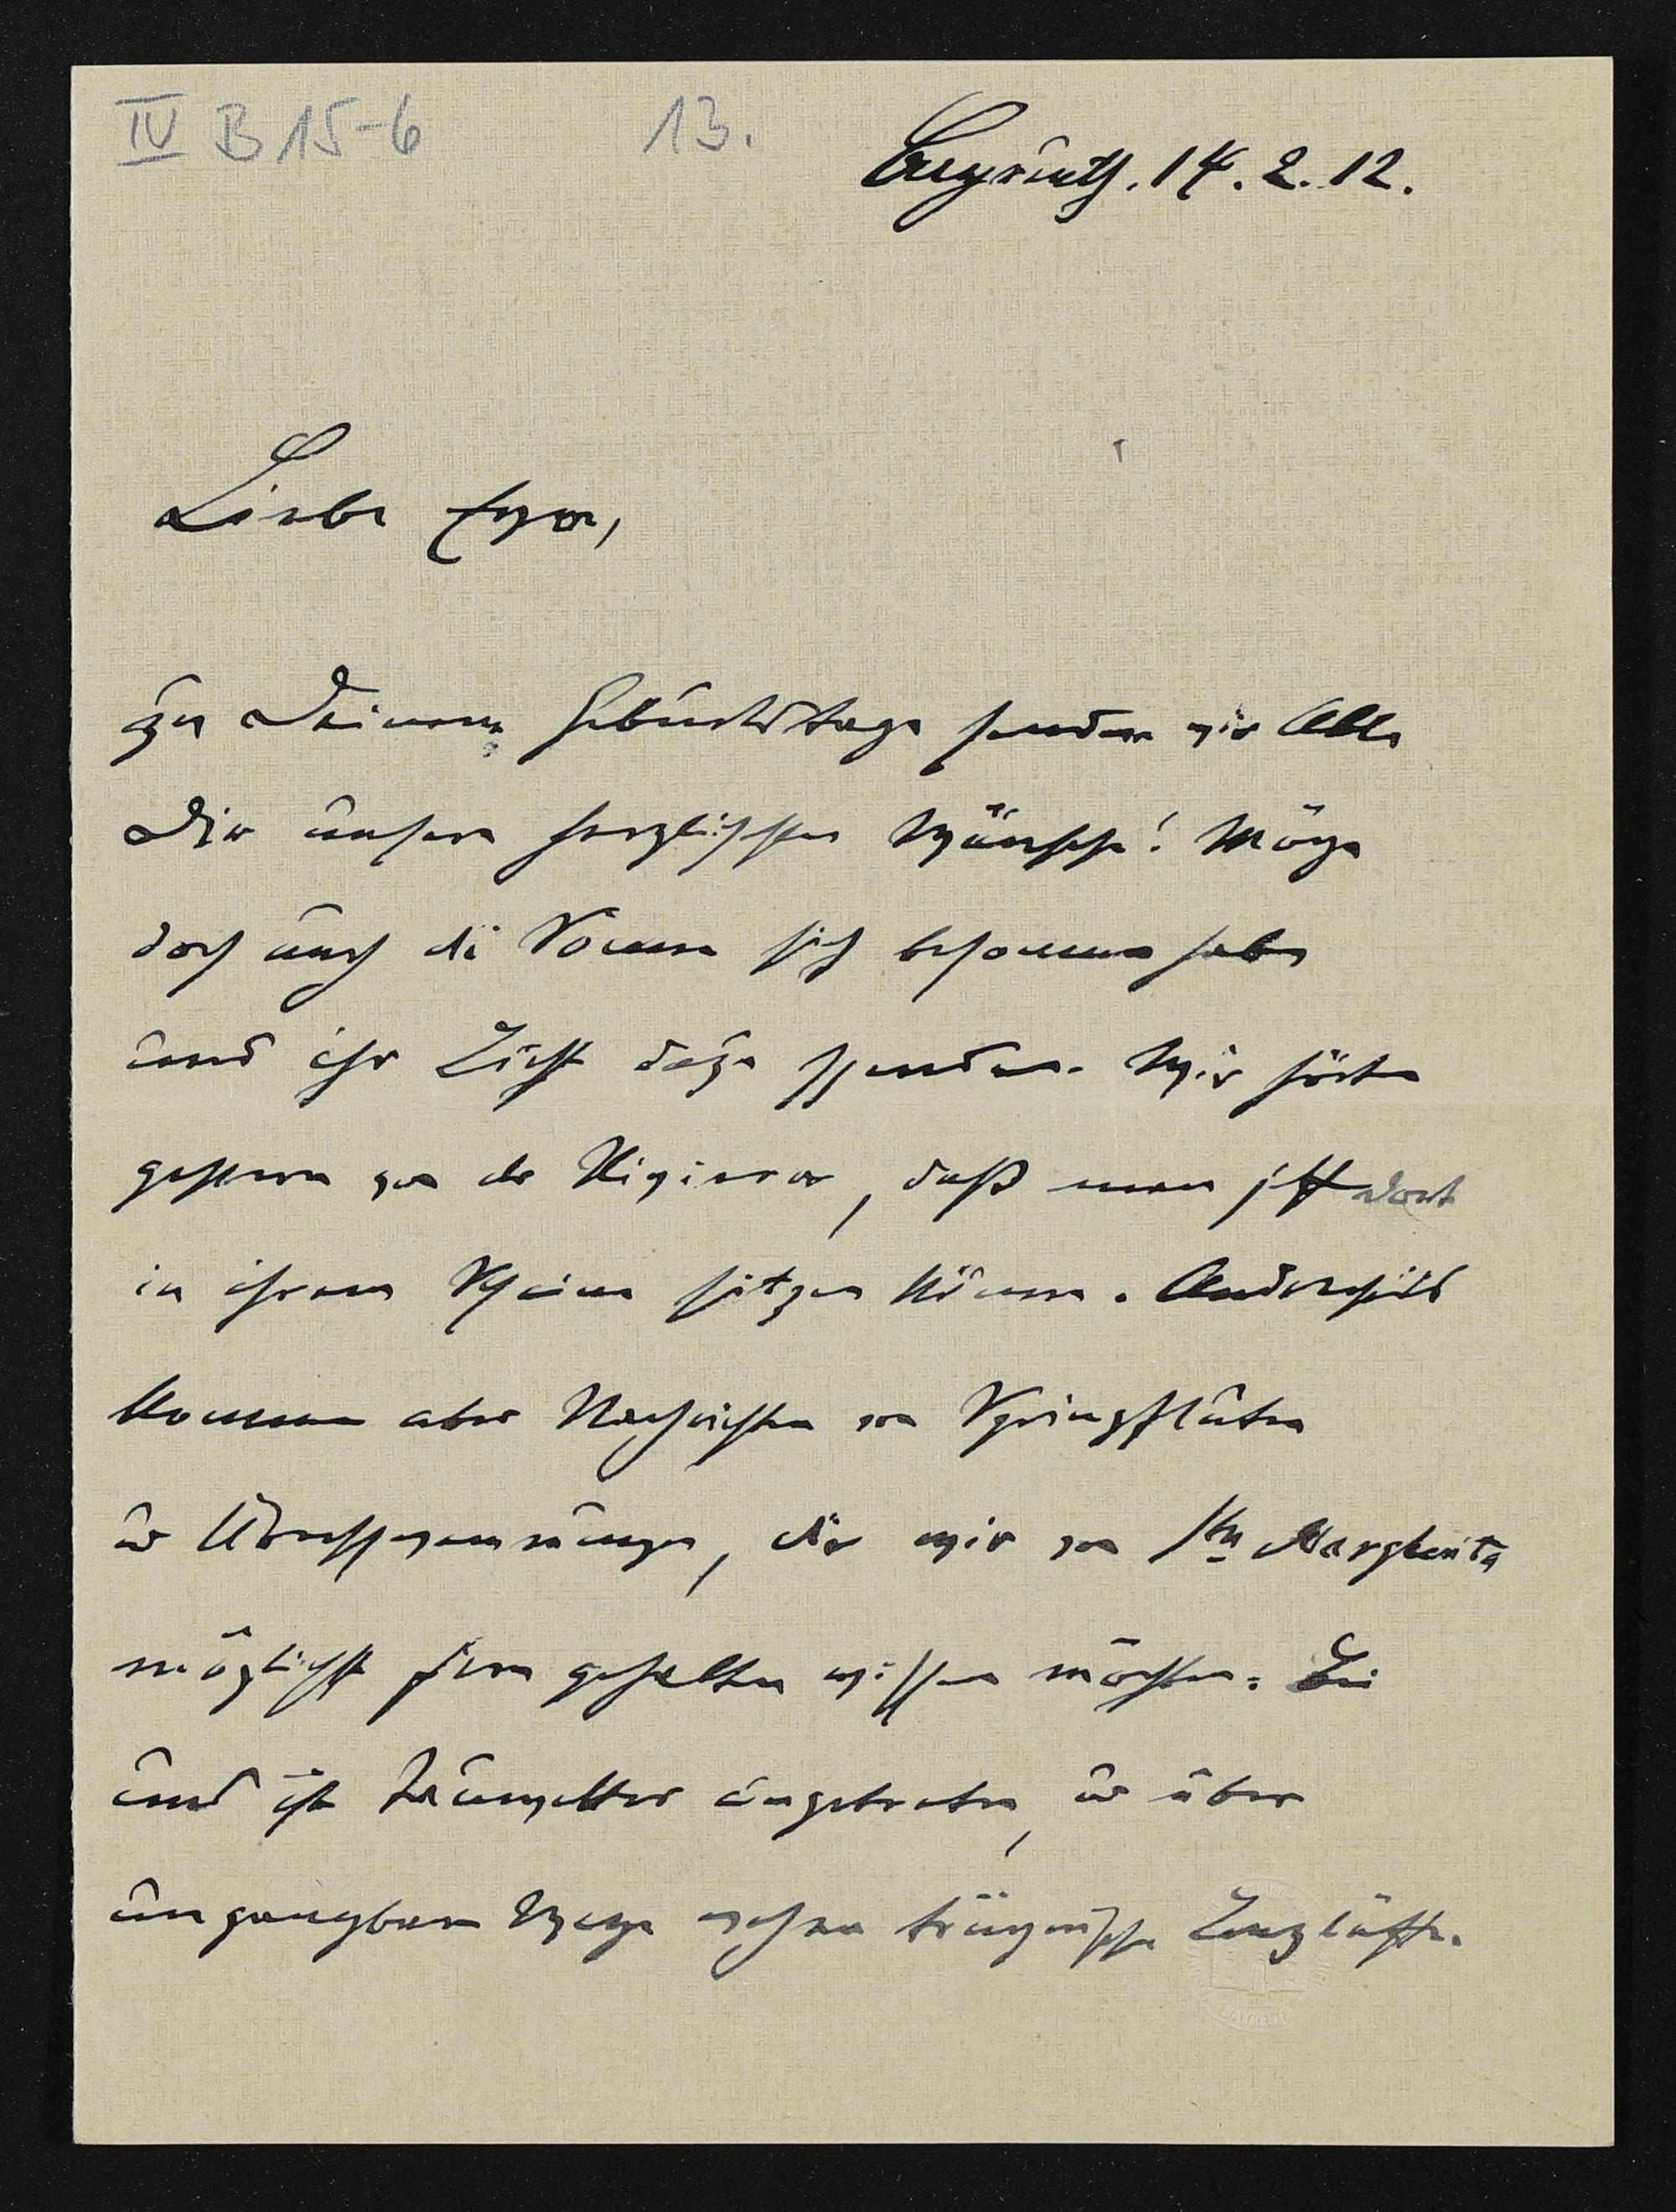 IV B 15-6 13.
Bayreuth. 14. 2. 12.
Liebe Eva,
zu Deinem Geburtstage senden wir Alle
Dir unsere herzlichsten Wünsche! Möge
doch auch die Sonne sich besonnen haben
und ihr Licht dazu spenden. Wir hörten
gestern von der Riviera, daß man jetzt dort
in ihrem Scheine sitzen könne. Anderseits
kommen aber Nachrichten von Springfluten
u. Überschwemmungen, die wir von Sta Margherita
möglichst fern gehalten wissen möchten. Bei
uns ist Tauwetter eingetreten, u. über
ungangbare Wege wehen trügerische Lenzlüfte.